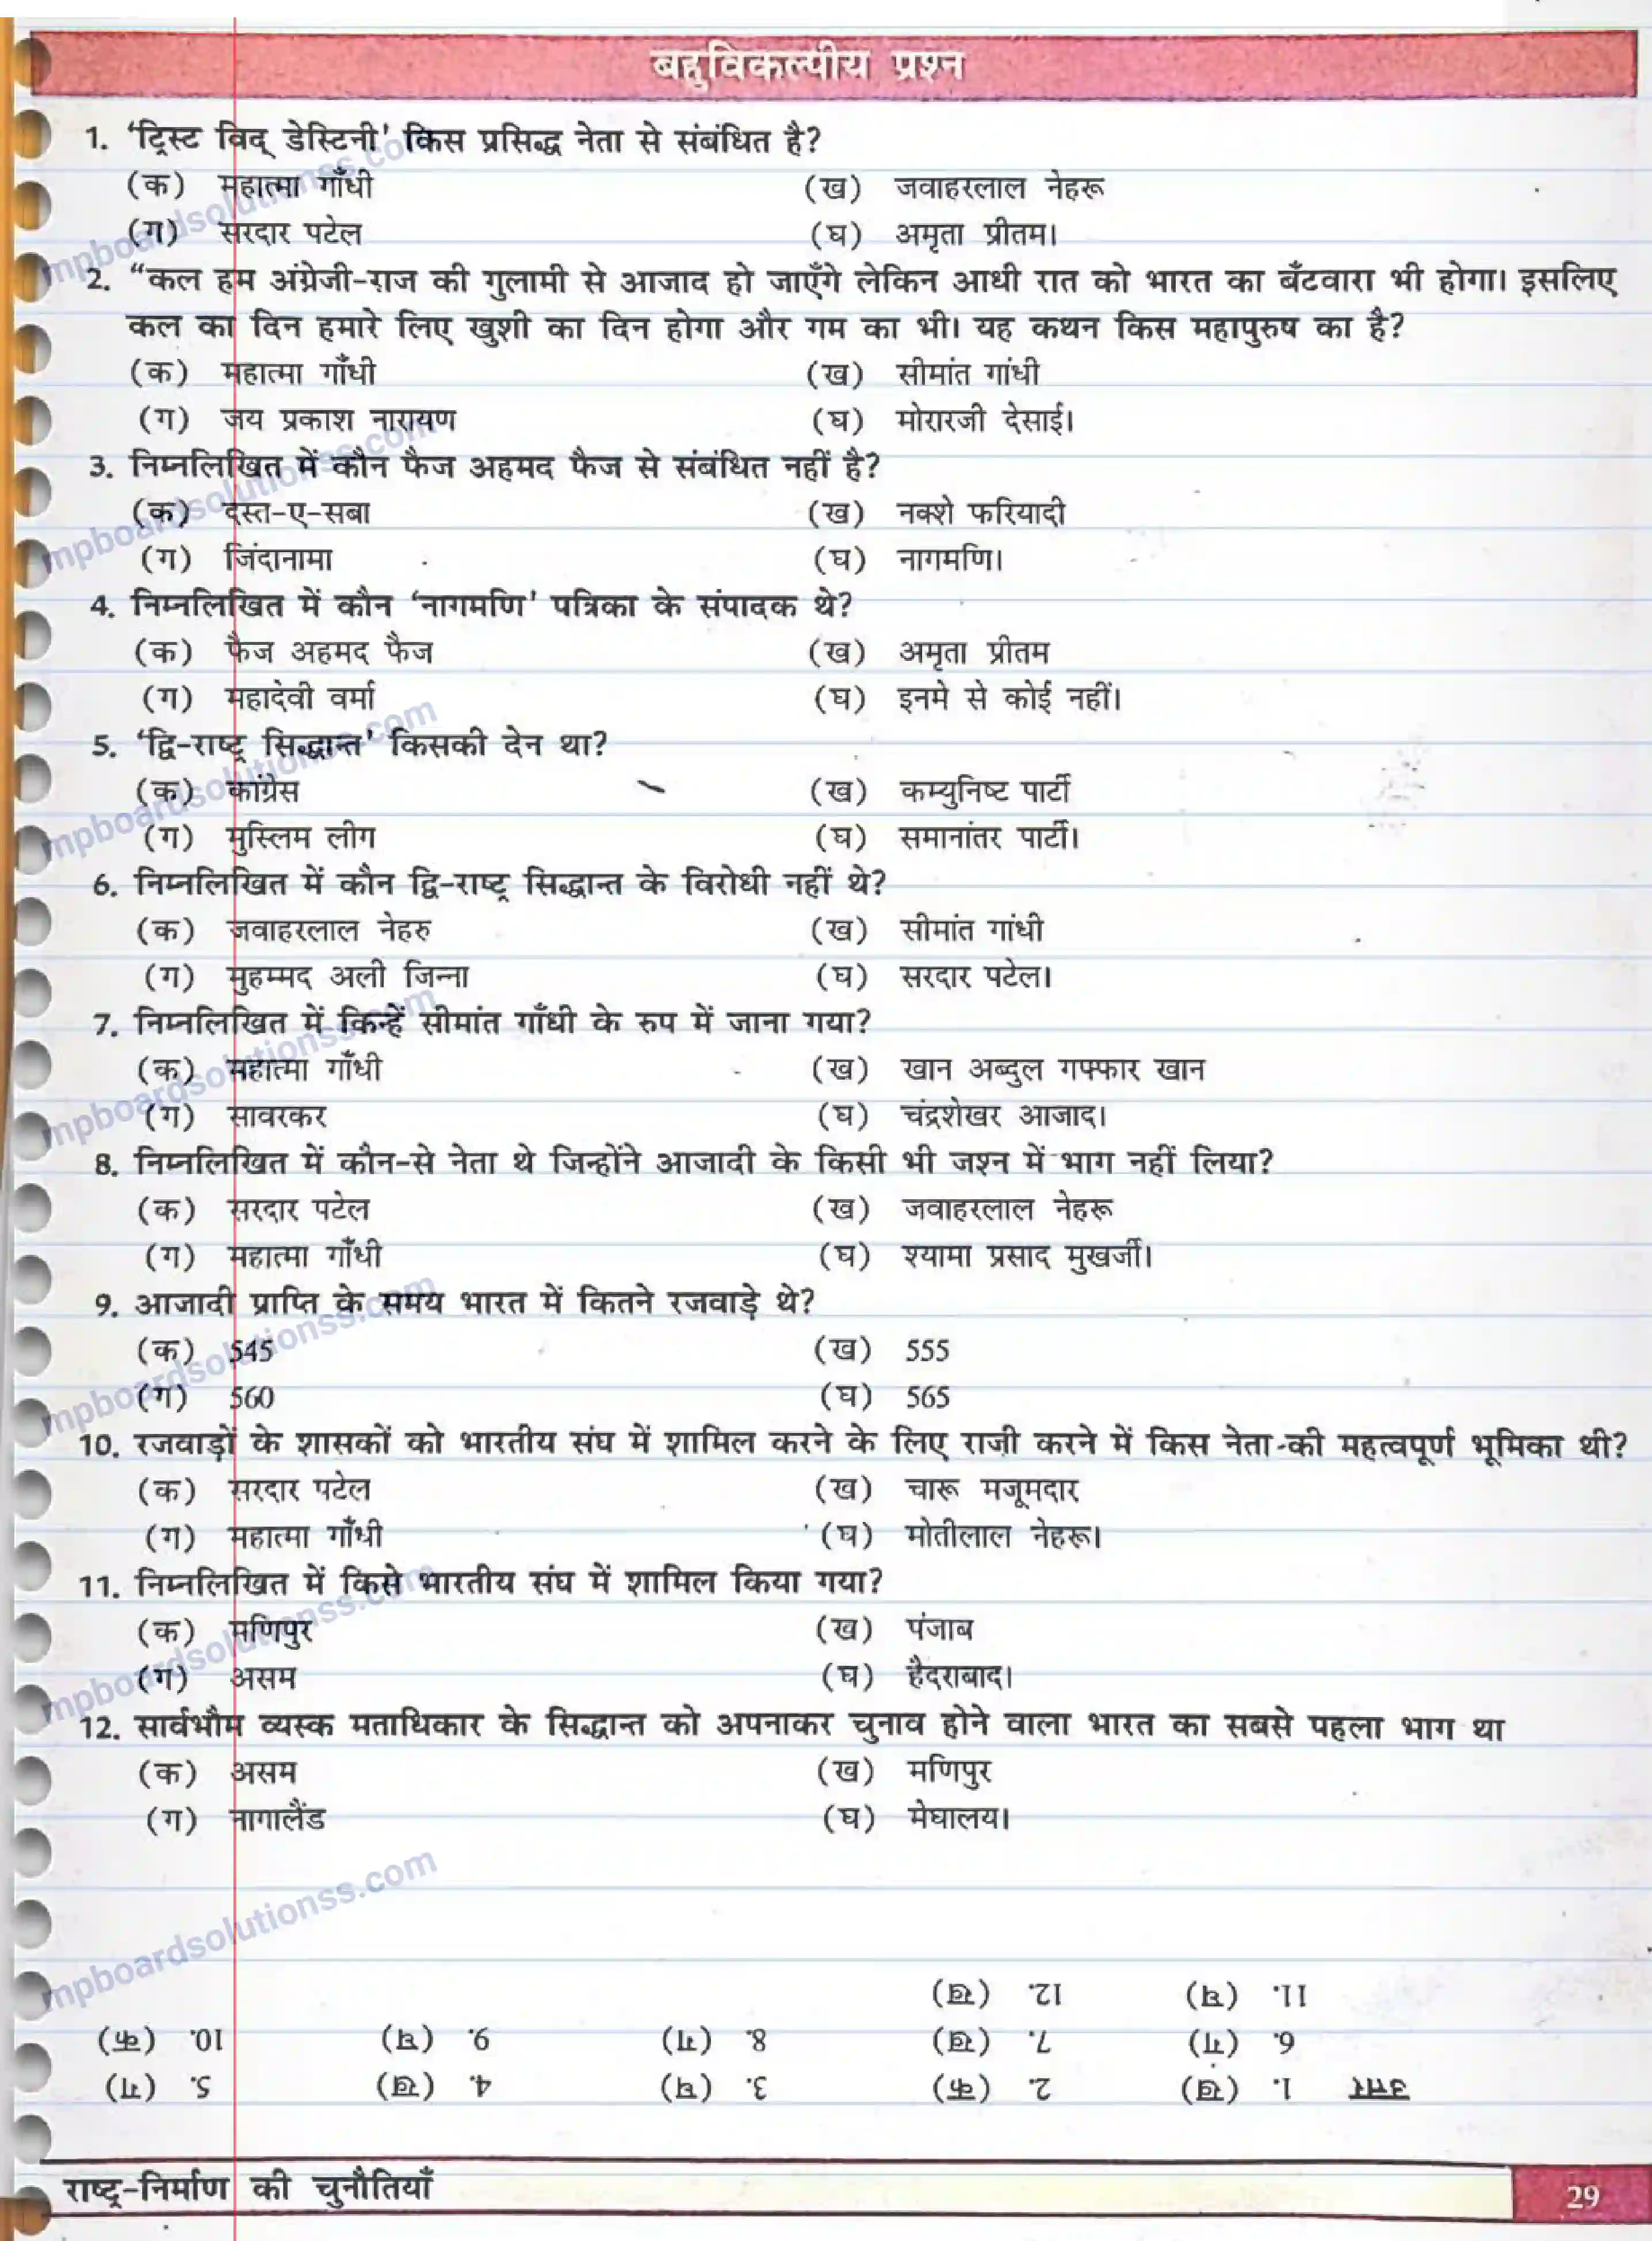 बहुविकल्पीय प्रश्न
1. 'ट्रिस्ट विद् डेस्टिनी' किस प्रसिद्ध नेता से संबंधित है?
(क) महात्मा गाँधी (ख) जवाहरलाल नेहरू
(ग) सरदार पटेल (घ) अमृता प्रीतम।
2. “कल हम अंग्रेजी-राज की गुलामी से आजाद हो जाएँगे लेकिन आधी रात को भारत का बँटवारा भी होगा। इसलिए
कल का दिन हमारे लिए खुशी का दिन होगा और गम का भी। यह कथन किस महापुरुष का है?
(क) महात्मा गाँधी (ख) सीमांत गांधी
(ग) जय प्रकाश नारायण (घ) मोरारजी देसाई।
3. निम्नलिखित में कौन फैज अहमद फैज से संबंधित नहीं है?
(क) दस्त-ए-सबा (ख) नक्शे फरियादी
(ग) जिंदानामा (घ) नागमणि।
4. निम्नलिखित में कौन ‘नागमणि' पत्रिका के संपादक थे?
(क) फैज अहमद फैज (ख) अमृता प्रीतम
(ग) महादेवी वर्मा (घ) इनमे से कोई नहीं।
5. ‘द्वि-राष्ट्र सिद्धान्त' किसकी देन था?
(क) कांग्रेस (ख) कम्युनिष्ट पार्टी
(ग) मुस्लिम लीग (घ) समानांतर पार्टी।
6. निम्नलिखित में कौन द्वि-राष्ट्र सिद्धान्त के विरोधी नहीं थे?
(क) जवाहरलाल नेहरु (ख) सीमांत गांधी
(ग) मुहम्मद अली जिन्ना (घ) सरदार पटेल।
7. निम्नलिखित में किन्हें सीमांत गाँधी के रुप में जाना गया?
(क) महात्मा गाँधी (ख) खान अब्दुल गफ्फार खान
(ग) सावरकर (घ) चंद्रशेखर आजाद।
8. निम्नलिखित में कौन-से नेता थे जिन्होंने आजादी के किसी भी जश्न में भाग नहीं लिया?
(क) सरदार पटेल (ख) जवाहरलाल नेहरू
(ग) महात्मा गाँधी (घ) श्यामा प्रसाद मुखर्जी।
9. आजादी प्राप्ति के समय भारत में कितने रजवाड़े थे?
(क) 545 (ख) 555
(ग) 560 (घ) 565
10. रजवाड़ों के शासकों को भारतीय संघ में शामिल करने के लिए राजी करने में किस नेता की महत्वपूर्ण भूमिका थी?
(क) सरदार पटेल (ख) चारू मजूमदार
(ग) महात्मा गाँधी (घ) मोतीलाल नेहरू।
11. निम्नलिखित में किसे भारतीय संघ में शामिल किया गया?
(क) मणिपुर (ख) पंजाब
(ग) असम (घ) हैदराबाद।
12. सार्वभौम व्यस्क मताधिकार के सिद्धान्त को अपनाकर चुनाव होने वाला भारत का सबसे पहला भाग था
(क) असम (ख) मणिपुर
(ग) नागालैंड (घ) मेघालय।
उत्तर 1. (ख) 2. (क) 3. (घ) 4. (ख) 5. (ग)
6. (ग) 7. (ख) 8. (ग) 9. (घ) 10. (क)
11. (घ) 12. (ख)
राष्ट्र-निर्माण की चुनौतियाँ 29
mpboardsolutionss.com
mpboardsolutionss.com
mpboardsolutionss.com
mpboardsolutionss.com
mpboardsolutionss.com
mpboardsolutionss.com
mpboardsolutionss.com